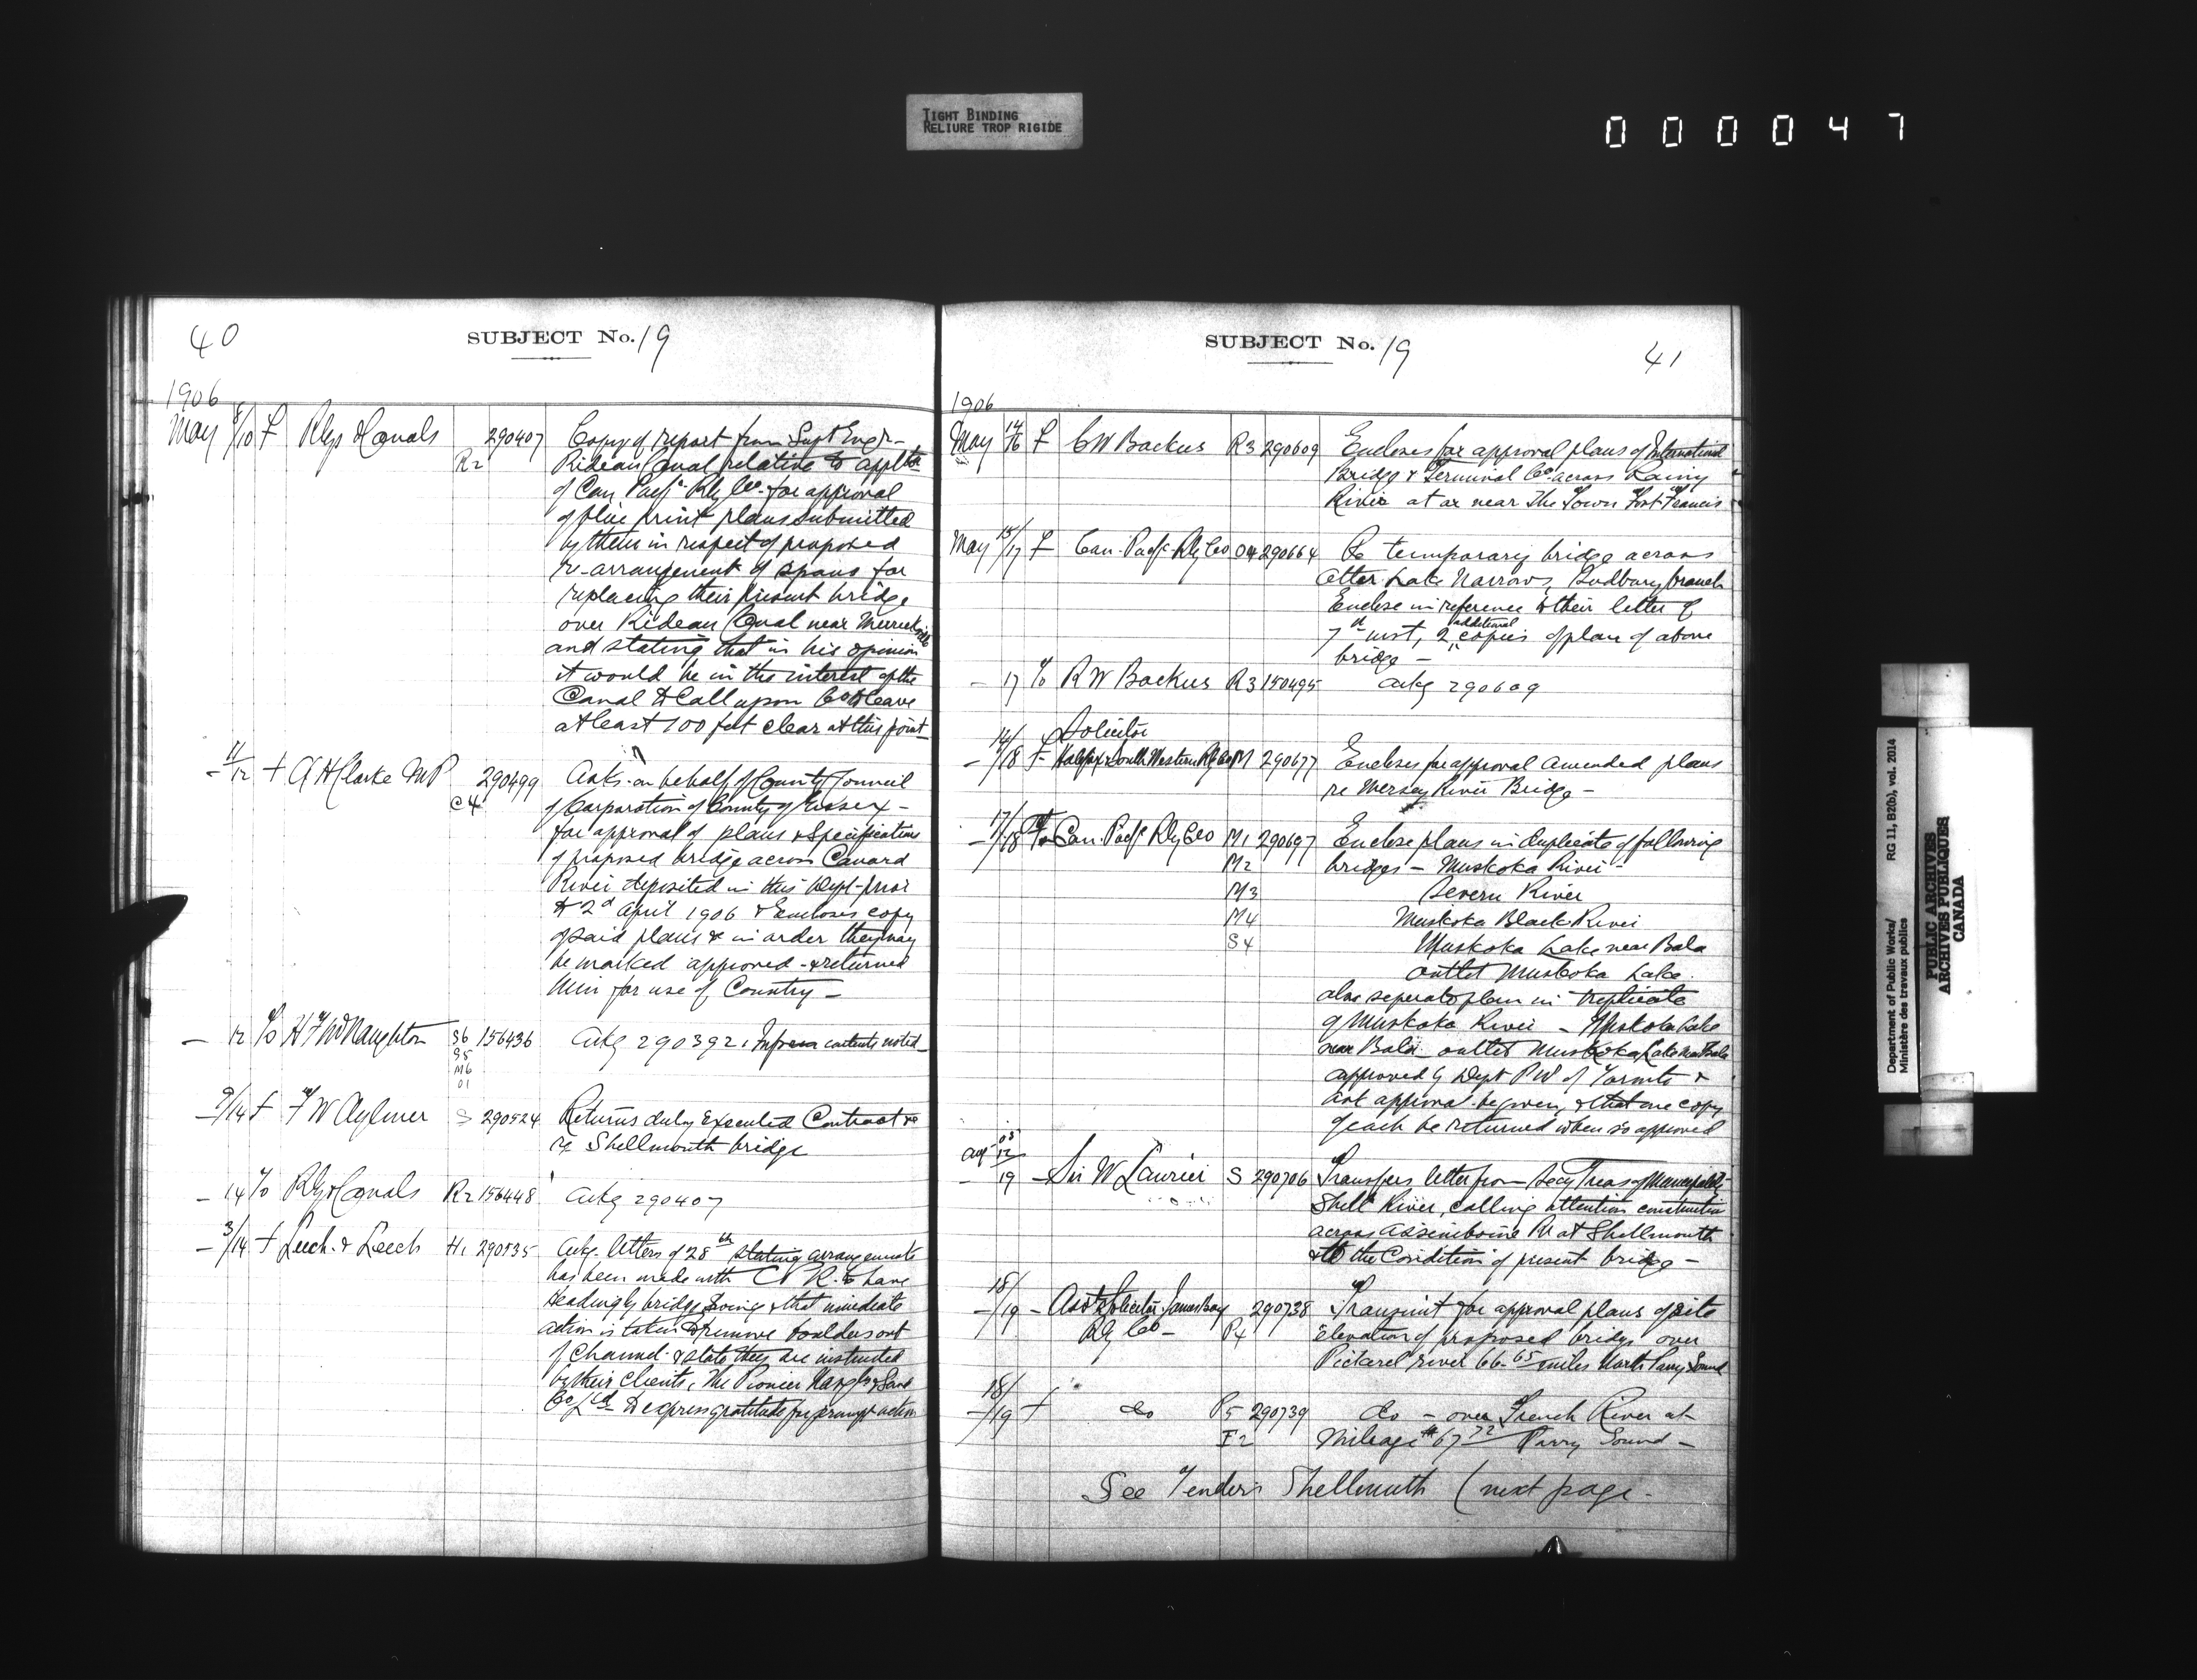 TIGHT BINDING
RELIURE TROP RIGIDE
000047
40
SUBJECT No. 19
1906
May 8/10 F Rlys & Canals R2 290407 Copy of report from Supt Engr -
Rideau Canal relative to applctn
of Can Pacfc Rly Co. for approval
of blue print plans submitted
by them in respect of proposed
re-arrangement of spans for
replacing their present bridge
over Rideau Canal near Merrickville
and stating that in his opinion
it would be in the interest of the
Canal to call upon Co to leave
at least 100 feet clear at this point
- 11/12 F A H Clarke MP C4 290499 Asks on behalf of County Council
of Corporation of County of Essex -
for approval of plans & Specifications
of proposed bridge across Canard
River deposited in this Dept prior
to 2d April 1906 & Encloses copy
of said plans & in order they may
be marked approved & returned
him for use of Country -
- 12 To H F McNaughton S6 156436 Ackg 290392. contents noted
S5
M6
O1
- 9/14 F F W Aylmer S 290524 Returns duly Executed Contract
re Shellmouth bridge
- 14 To Rlys & Canals R2 156448 Ackg 290407
- 3/14 F Leech & Leech H1 290535 Ackg letters of 28th stating arrangements
has been made with C P R to have
Headingly bridge swing & that immediate
action is taken to remove boulders out
of Channel & state they are instructed
by their clients, The Pioneer Navgtn & Sand
Co Ltd to express gratitude for prompt action
SUBJECT No. 19
41
1906
May 14/16 F C W Backus R3 290609 Encloses for approval plans of International
Bridge & Terminal Co. across Rainy
River at or near The Town of Fort Francis
May 15/17 F Can. Pacfc Rly Co O4 290664 Re temporary bridge across
Otter Lake Narrows, Sudbury branch
Enclose in reference to their letter of
7th inst, 2 additional copies of plan of above
bridge -
- 17 To R W Backus R3 150495 Ackg 290609
Solicitor
- 14/18 F Halifax & South Western Rly Co M 290677 Encloses for approval amended plans
re Mersey River Bridge -
- 17/18 F Can. Pacfc Rly Co M1 290697 Enclose plans in duplicate of following
M2 bridges - Muskoka River -
M3 Severn River
M4 Muskoka Black River
S4 Muskoka Lake near Bala
outlet Muskoka Lake.
also seperate plan in triplicate
of Muskoka River - Muskoka Lake
near Bala - outlet Muskoka Lake near Bala
approved by Dept PW of Toronto &
ask approval be given, & that one copy
of each be returned when so approved
- 19 - Sir W Laurier S 290706 Transfers letter from Secy Treas of Municipality
Shell River, calling attention construction
across Assiniboine Rr at Shellmouth
& to the Condition of present bridge -
- 18/19 - Asst Solicitor James Bay 290738 Transmit for approval plans of site
Rly Co - P4 Elevation of proposed bridge over
Pickarel river 66.65 miles North Parry Sound
- 18/19 F do P5 290739 do - over French River at
F2 Mileage # 67.72 Parry Sound -
See Tenders Shellmuth (next page -
Department of Public Works/
Ministère des travaux publics
RG 11, B2(b), vol. 2014
PUBLIC ARCHIVES
ARCHIVES PUBLIQUES
CANADA